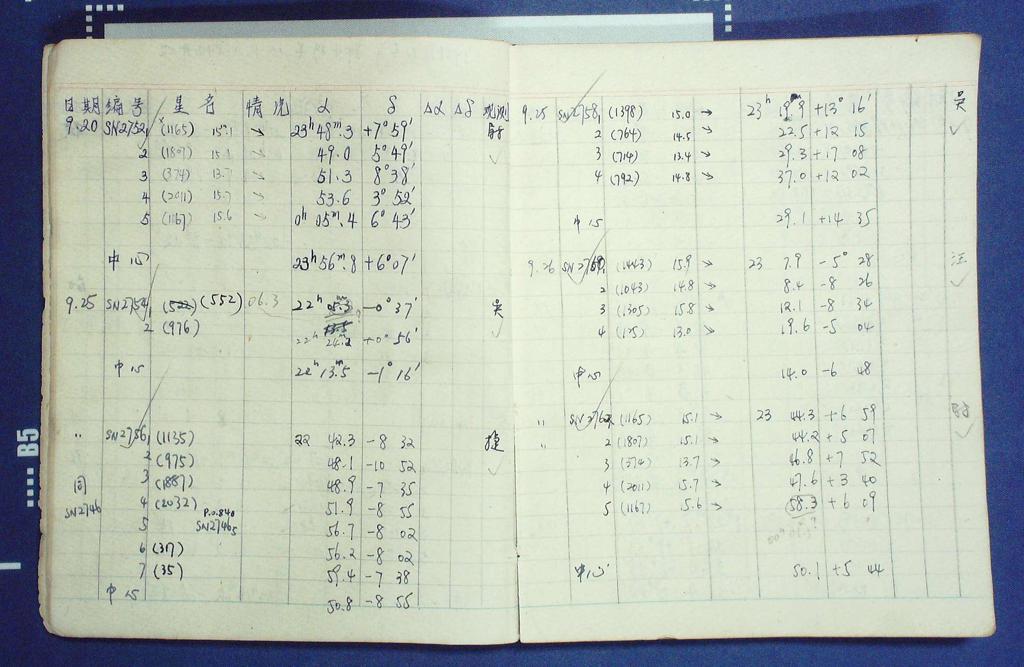 日期 编号 星名 情况 α δ Δα Δδ 观测
9.20 SN2752 1 (1165) 15m.1 → 23h48m.3 +7°59′
2 (1807) 15.1 → 49.0 5°49′
3 (374) 13.7 → 51.3 8°38′
4 (2011) 15.7 → 53.6 3°52′
5 (1167) 15.6 → 0h05m.4 6°43′
中心 23h56m.8 +6°07′
9.25 SN2754 1 (552) 06.3 22h -0°37′ 吴
2 (976) 22h 26.2 +0°56′
中心 22h13m.5 -1°16′
" SN2756 1 (1135) 22 42.3 -8 32 捷
2 (975) 48.1 -10 52
3 (1887) 48.9 -7 35
同 SN2746 4 (2032) 51.9 -8 55
5 P.O.840 SN2746 5 56.7 -8 02
6 (317) 56.2 -8 02
7 (35) 59.4 -7 38
中心 50.8 -8 55
9.25 SN2758 1 (1398) 15.0 → 23h 19m.9 +13° 16′ 吴
2 (764) 14.5 → 22.5 +12 15
3 (714) 13.4 → 29.3 +17 08
4 (792) 14.8 → 37.0 +12 02
中心 29.1 +14 35
9.26 SN2760 1 (1443) 15.9 → 23 7.9 -5° 28 汪
2 (1043) 14.8 → 8.4 -8 26
3 (1305) 15.8 → 12.1 -8 34
4 (125) 13.0 → 19.6 -5 04
中心 14.0 -6 48
" SN2762 1 (1165) 15.1 → 23 44.3 +6 59
" 2 (1807) 15.1 → 44.2 +5 07
3 (374) 13.7 → 46.8 +7 52
4 (2011) 15.7 → 47.6 +3 40
5 (1167) 15.6 → 58.3 +6 09
中心 50.1 +5 44
B5